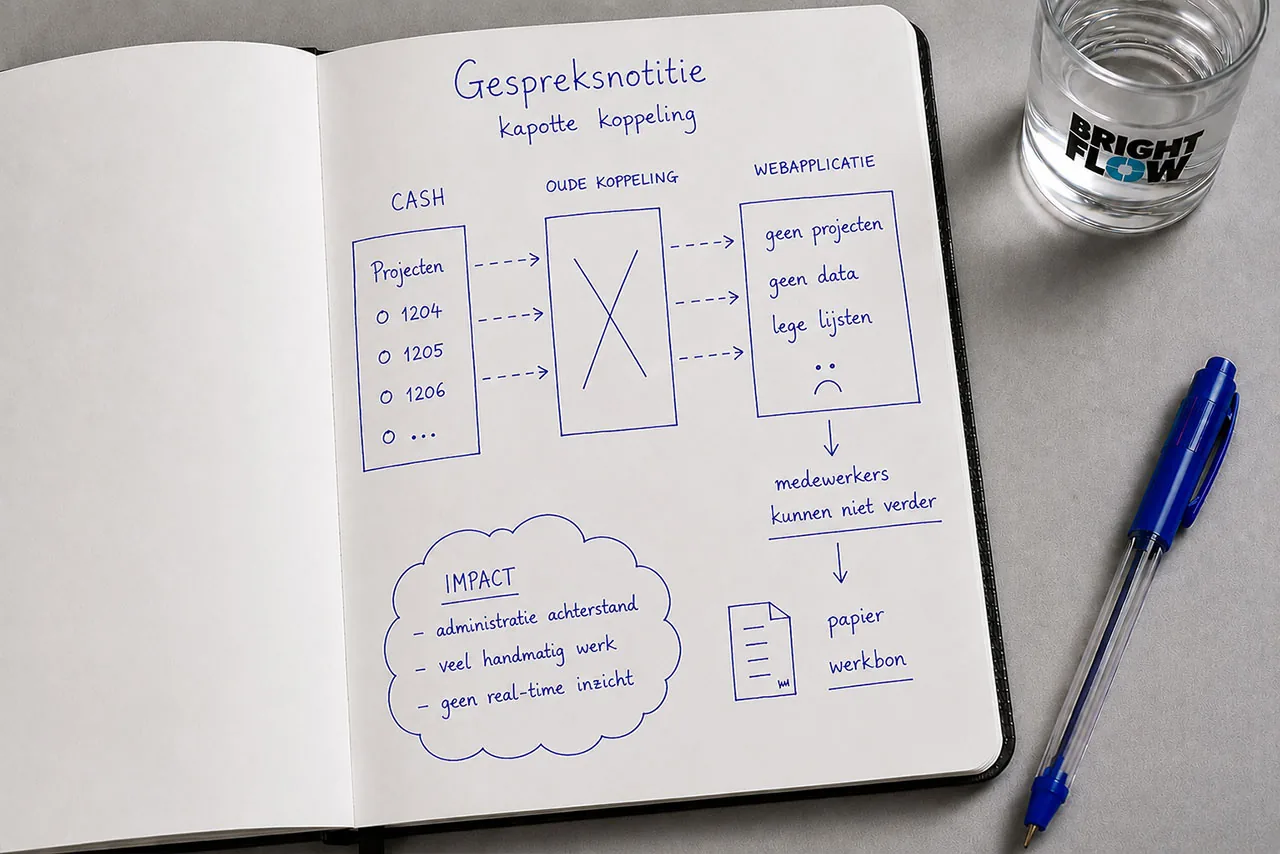 Gespreksnotitie
kapotte koppeling
CASH
Projecten
1204
1205
1206
...
OUDE KOPPELING
WEBAPPLICATIE
geen projecten
geen data
lege lijsten
medewerkers
kunnen niet verder
papier
werkbon
IMPACT
- administratie achterstand
- veel handmatig werk
- geen real-time inzicht
BRIGHT
FLOW